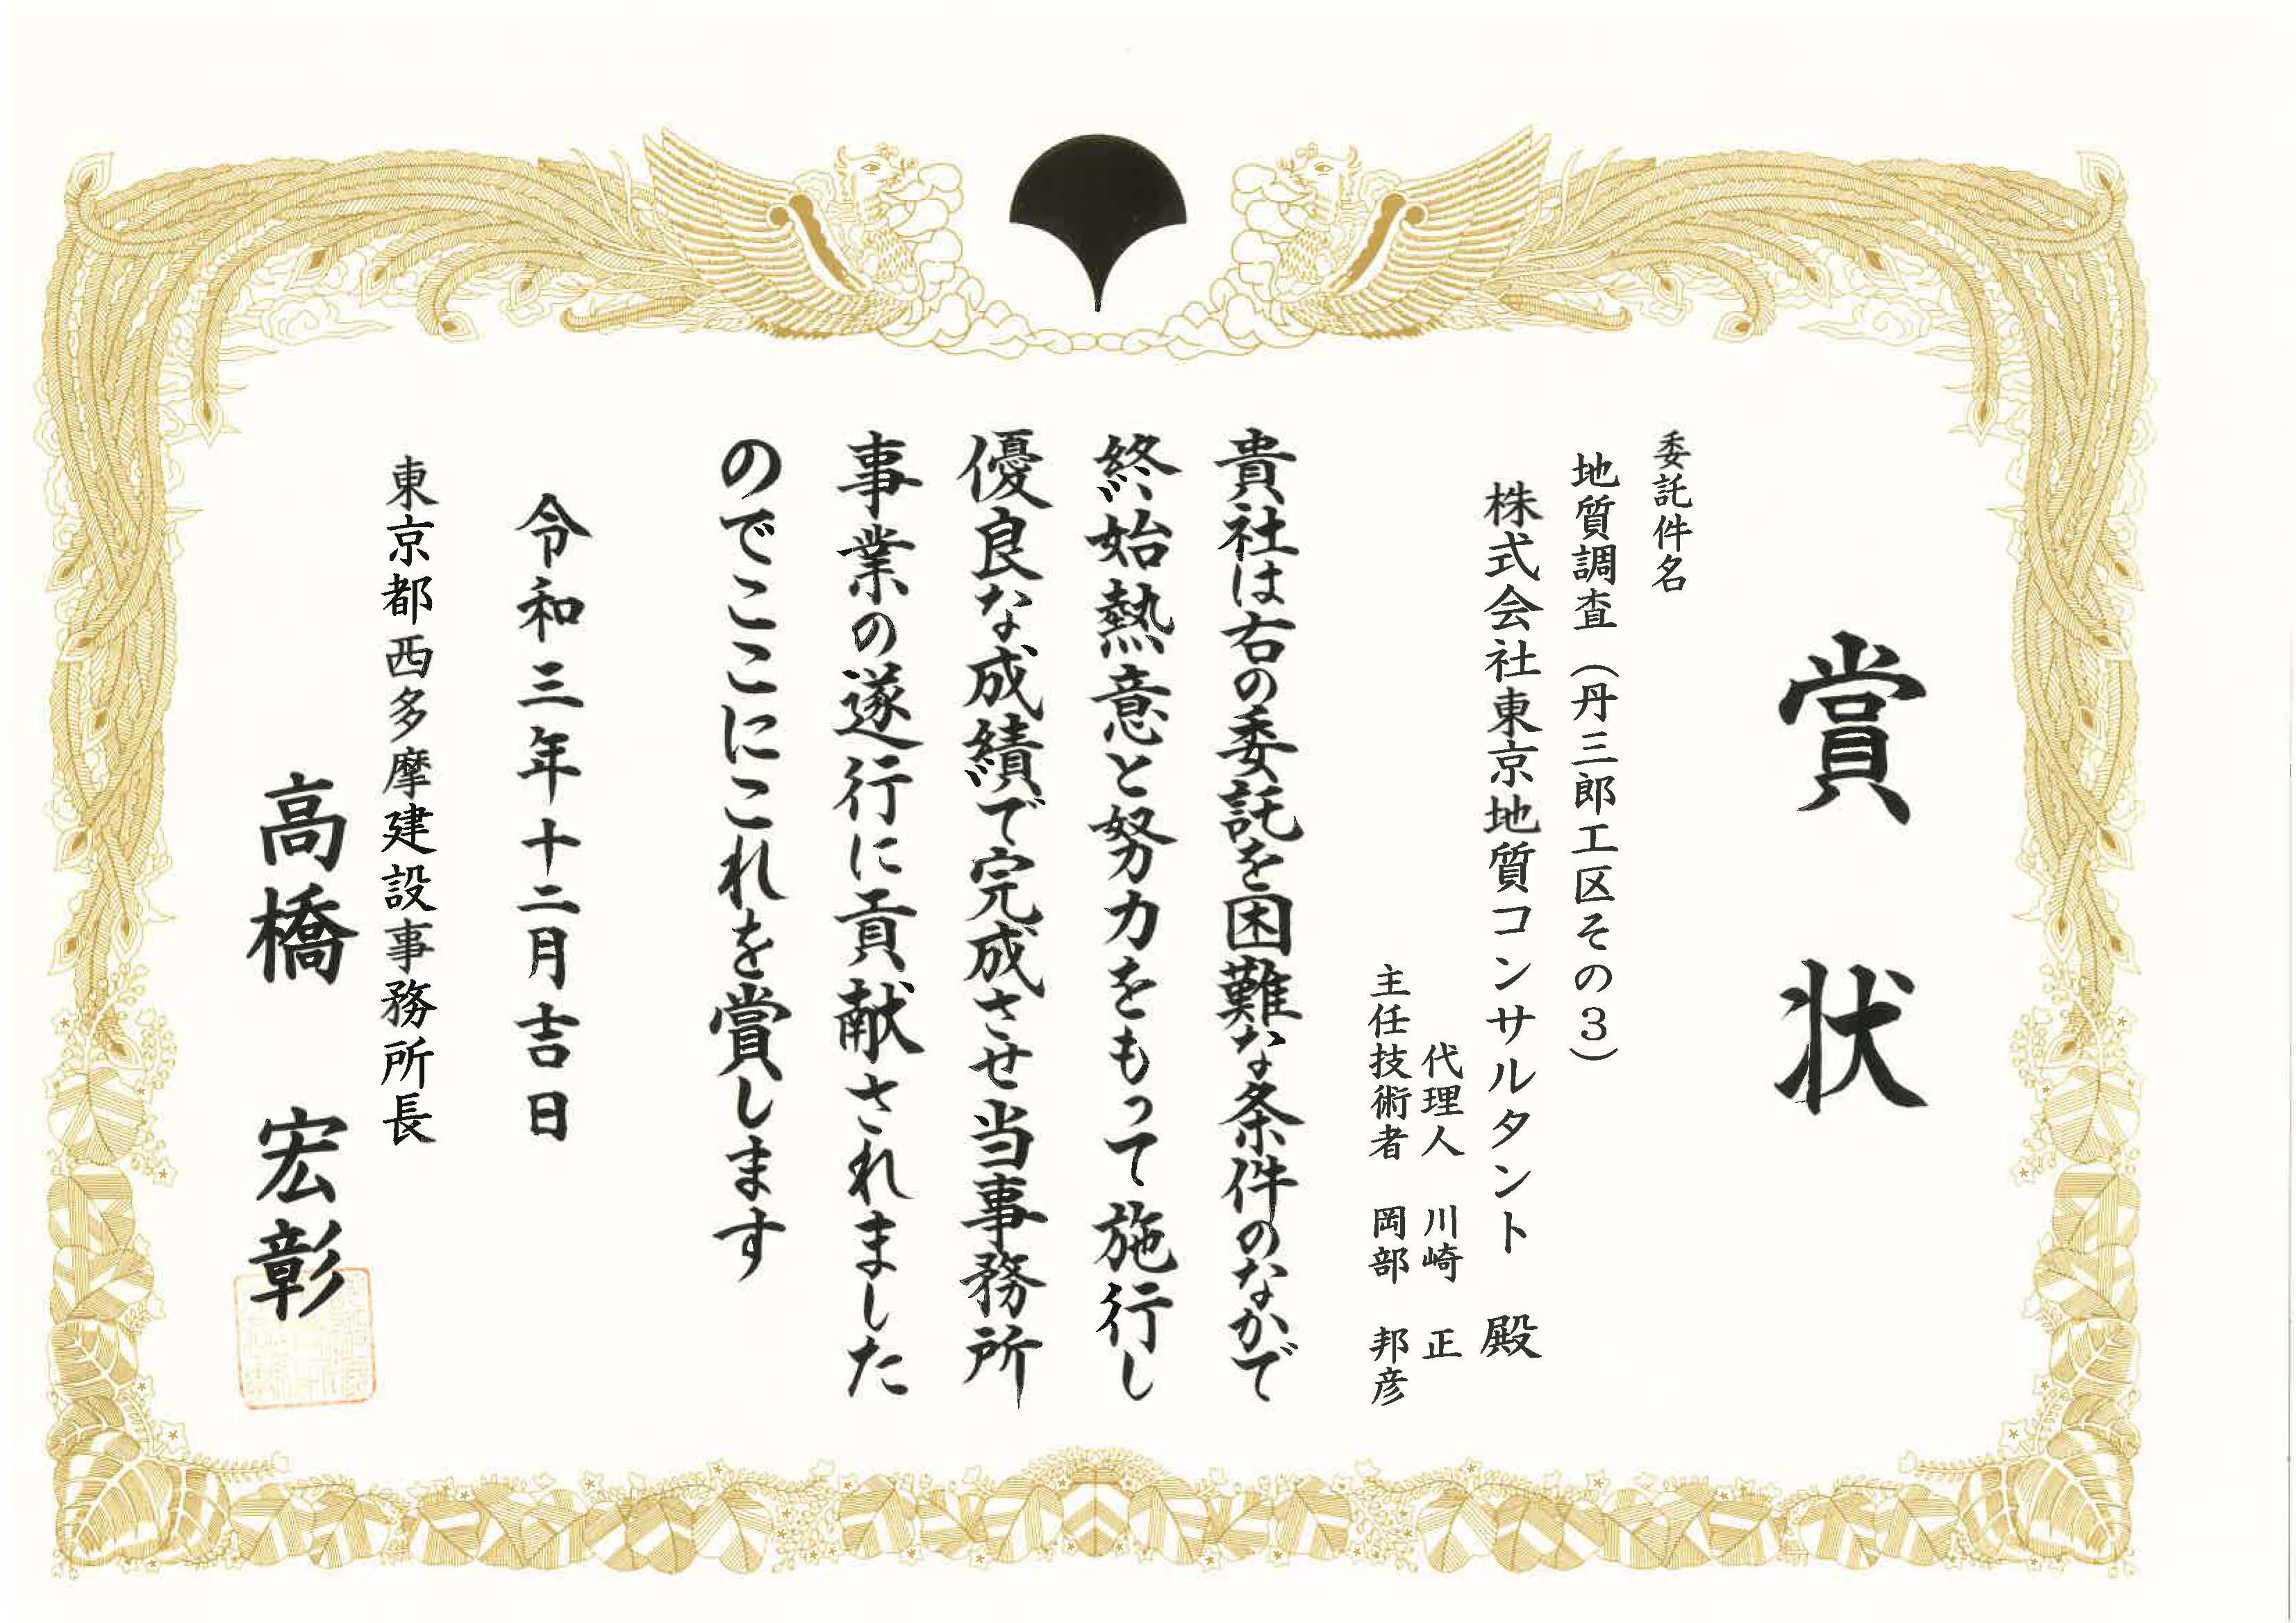 賞状
委託件名
地質調査(丹三郎工区その3)
株式会社東京地質コンサルタント 殿
代理人 川崎 正
主任技術者 岡部 邦彦
貴社は右の委託を困難な条件のなかで
終始熱意と努力をもって施行し
優良な成績で完成させ当事務所
事業の遂行に貢献されました
のでここにこれを賞します
令和三年十二月吉日
東京都西多摩建設事務所長
高橋 宏彰